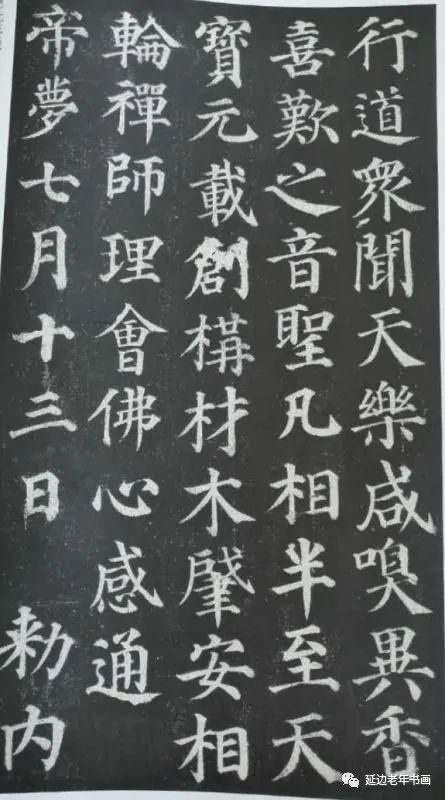 行道眾聞天樂咸嗅異香
喜歎之音聖凡相半至天
寶元載創構材木肇安相
輪禪師理會佛心感通
帝夢七月十三日 勑内
延边老年书画